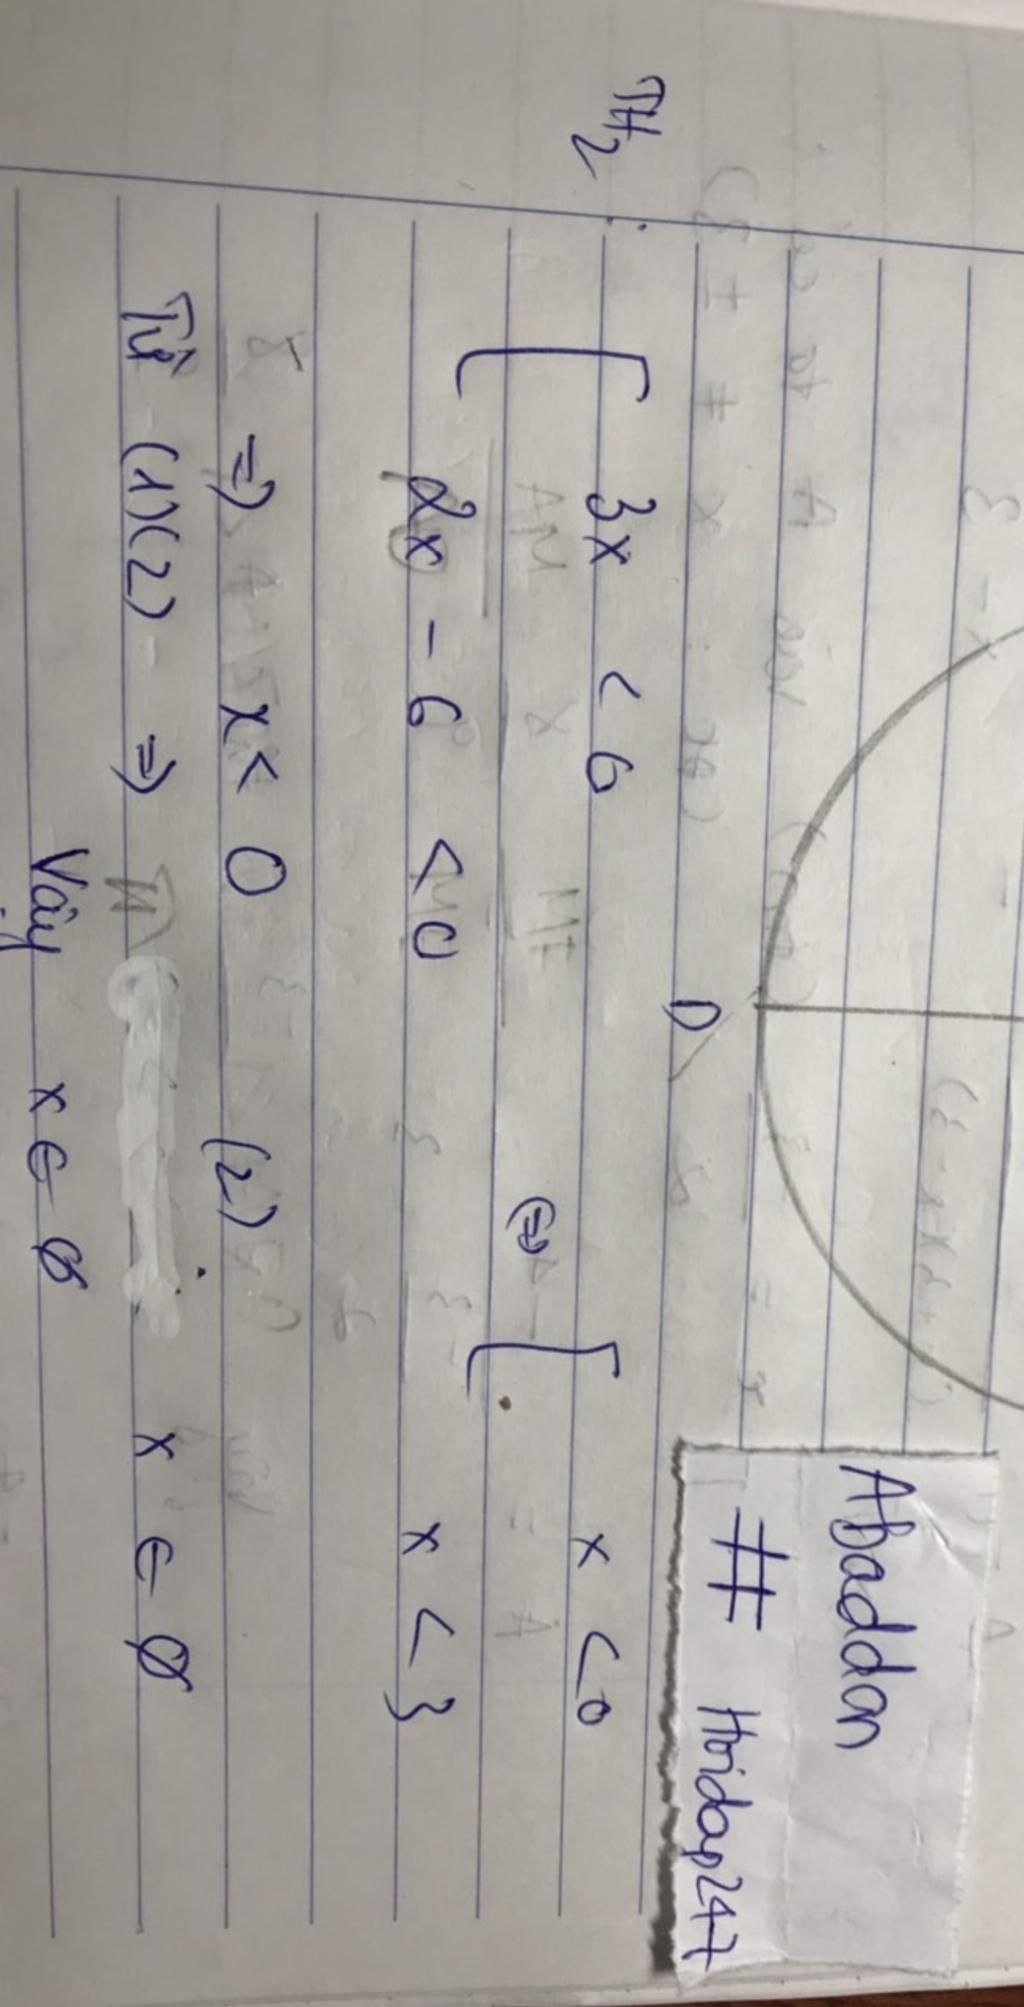 Abaddon
# Hoidap247
D
TH2:
[ 3x < 6
2x - 6 < 0
<=> [ x < 0
x < 3
=> x < 0 (2)
Từ (1)(2) => x ∈ ∅
Vậy x ∈ ∅